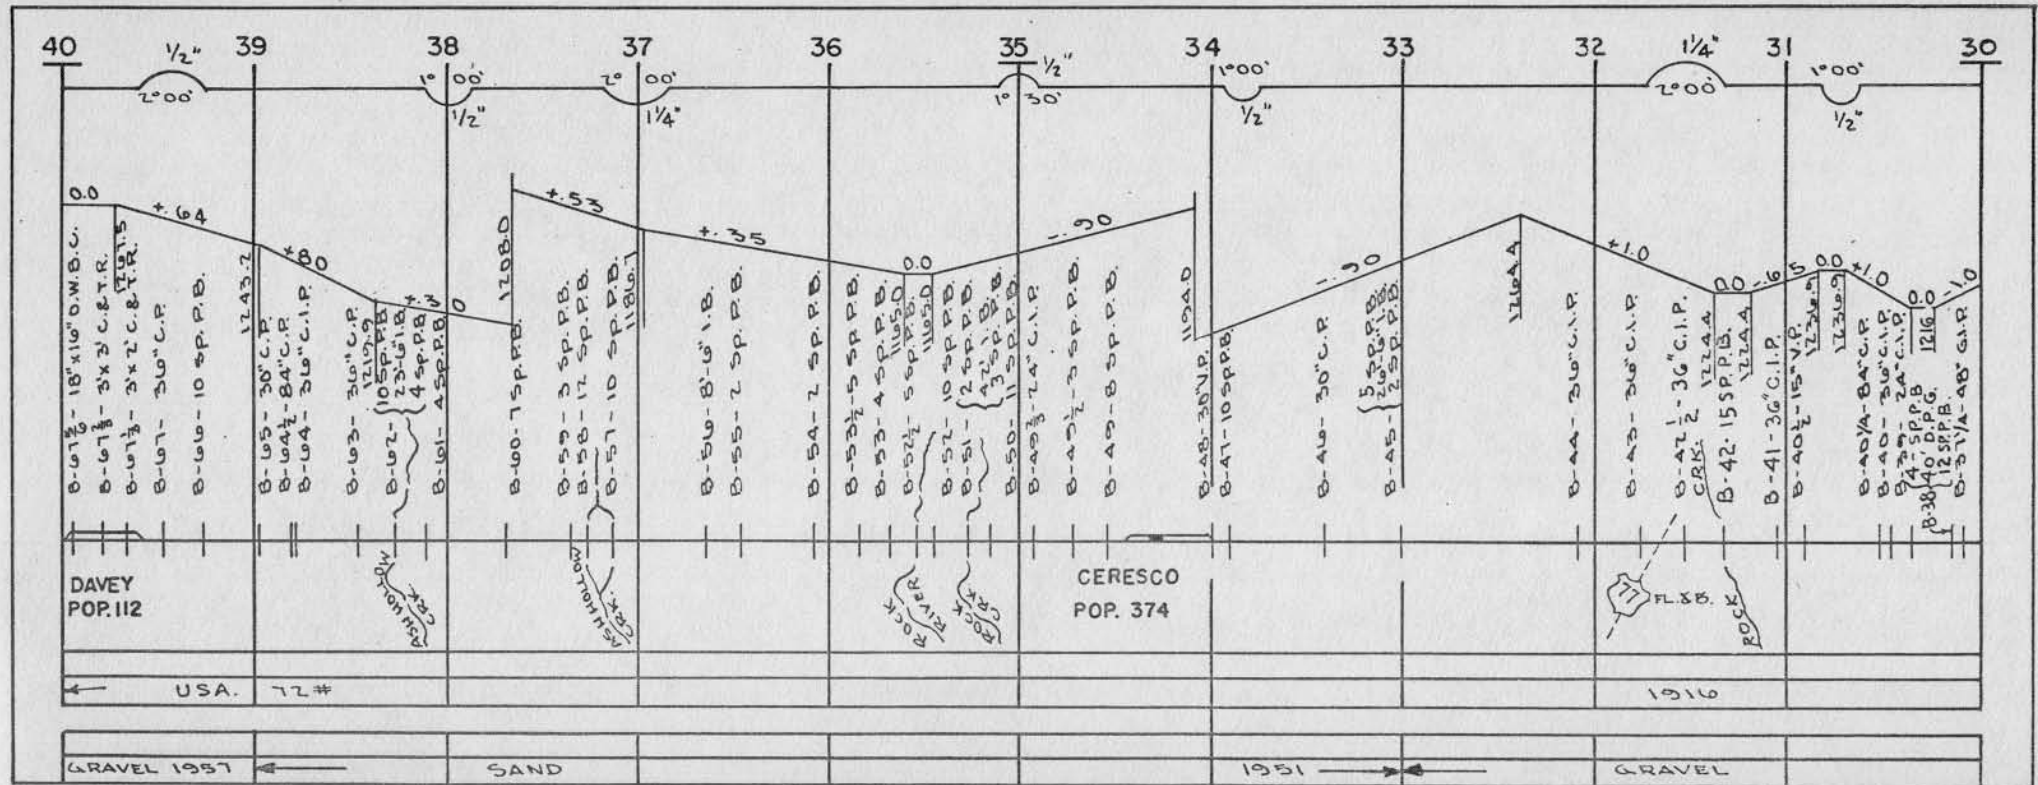 40 39 38 37 36 35 34 33 32 31 30
1/2" 1° 00' 2° 00' 1/2" 1°00' 1 1/4" 1°00'
2°00' 1/2" 1 1/4" 1° 30' 1/2" 2°00' 1/2"
0.0 +.64 +80 +.30 +.53 +.35 0.0 -.90 -.90 +1.0 0.0 -.65 0.0 +1.0 0.0 -1.0
B-67 5/6 - 18" x 16" O.W.B.C.
B-67 2/3 - 3'x3' C.& T.R.
B-67 1/3 - 3'x2' C.& T.R.
1261.5
B-67 - 36" C.P.
B-66 - 10 SP. P.B.
1243.2
B-65 - 30" C.P.
B-64 1/2 - 84" C.P.
B-64 - 36" C.I.P.
B-63 - 36" C.P.
1219.9
B-62 - {10 SP.P.B.
23'-6" I.B.
4 SP.P.B.
B-61 - 4 SP.P.B.
1208.0
B-60 - 7 SP.P.B.
B-59 - 3 SP. P.B.
B-58 - 12 SP. P.B.
B-57 - 10 SP. P.B.
1186.7
B-56 - 8'-6" I.B.
B-55 - 2 SP. P.B.
B-54 - 2 SP. P.B.
B-53 1/2 - 5 SP. P.B.
B-53 - 4 SP. P.B.
1165.0
B-52 1/2 - 5 SP. P.B.
1165.0
B-52 - 10 SP. P.B.
B-51 - {2 SP. P.B.
42' I.B.
3 SP. P.B.
B-50 - 11 SP. P.B.
B-49 2/3 - 24" C.I.P.
B-49 1/2 - 3 SP. P.B.
B-49 - 8 SP. P.B.
1194.0
B-48 - 30" V.P.
B-47 - 10 SP.P.B.
B-46 - 30" C.P.
B-45 - {5 SP. P.B.
26'-6" I.B.
2 SP. P.B.
1264.4
B-44 - 36" C.I.P.
B-43 - 36" C.I.P.
B-42 1/2 - 36" C.I.P.
1224.4
B-42 - 15 SP. P.B.
1224.4
B-41 - 36" C.I.P.
B-40 1/2 - 15" V.P.
1236.9
1236.9
B-40 1/4 - 84" C.I.P.
B-40 - 36" C.I.P.
B-39 - 24" C.I.P.
1216
B-38 {4 - SP. P.B
40' D.P.G.
12 SP. P.B.
B-37 1/4 - 48" C.I.P.
DAVEY
POP. 112
ASH HOLLOW
CRK.
ASH HOLLOW
CRK.
ROCK
RIVER
ROCK
CRK
CERESCO
POP. 374
77
FL. & B.
ROCK
CRK.
USA. 72# 1916
GRAVEL 1957 SAND 1951 GRAVEL